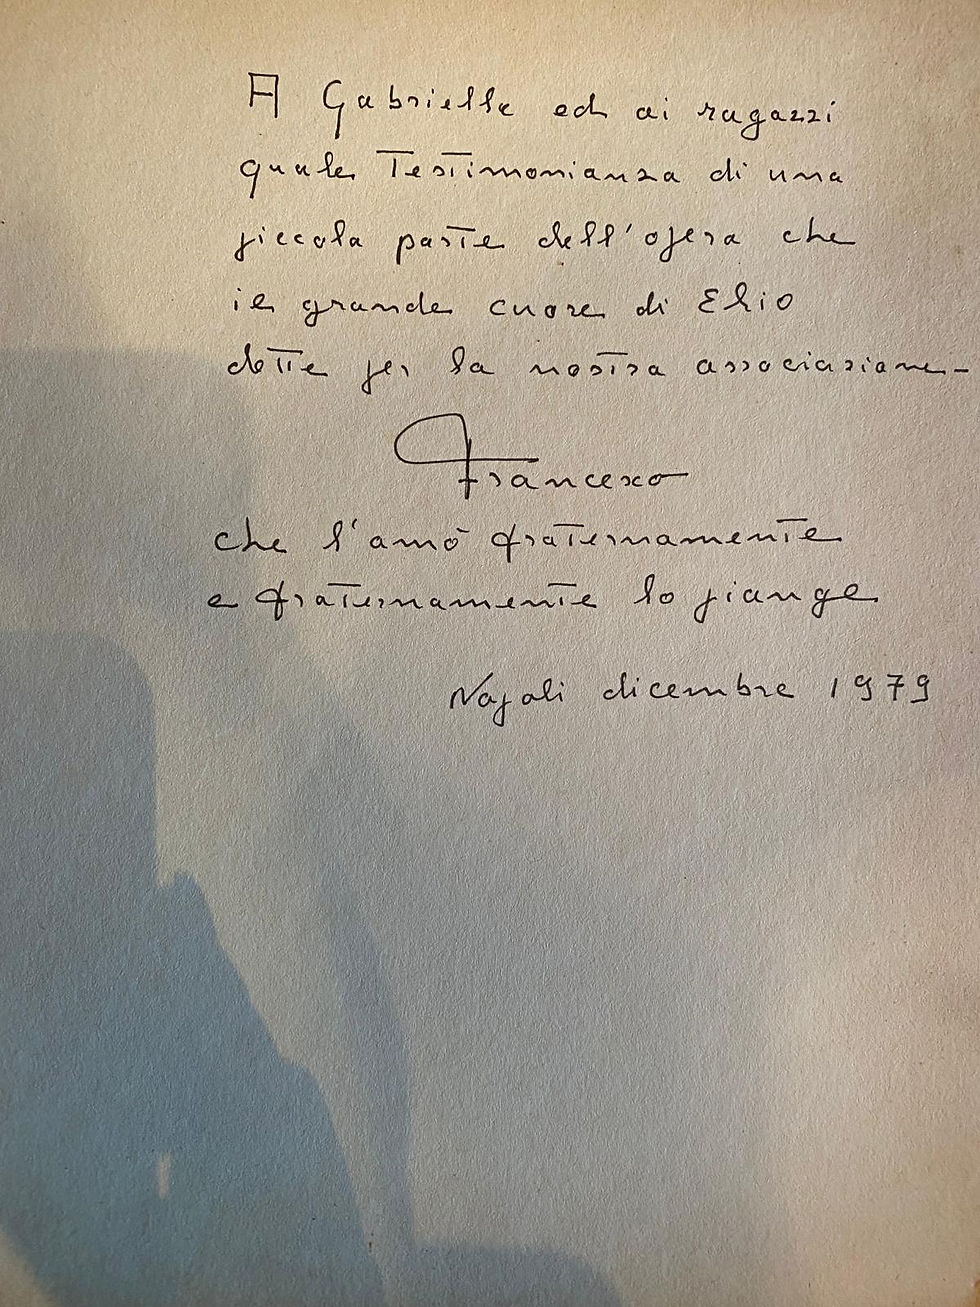 A Gabriella ed ai ragazzi
quale Testimonianza di una
piccola parte dell'opera che
il grande cuore di Elio
dette per la nostra associazione -
Francesco
che l'amò fraternamente
e fraternamente lo piange
Napoli dicembre 1979